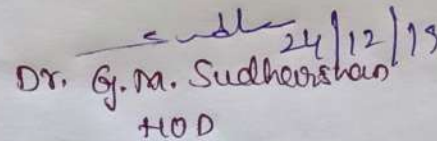 24/12/19
Dr. G.M. Sudhearshan
HOD